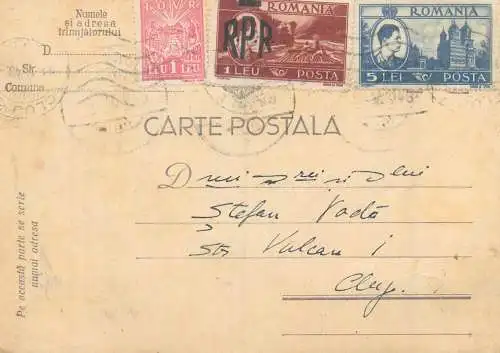 Numele
și adresa
trimițătorului
D.
Str.
Comuna
I.O.V.R.
LEU 1 LEU
ROMANIA
RPR
1 LEU POSTA
ROMANIA
5 LEI POSTA
CARTE POSTALA
D
Ștefan Vodă
Str Vulcan 1
Cluj.
Pe această parte se scrie
numai adresa